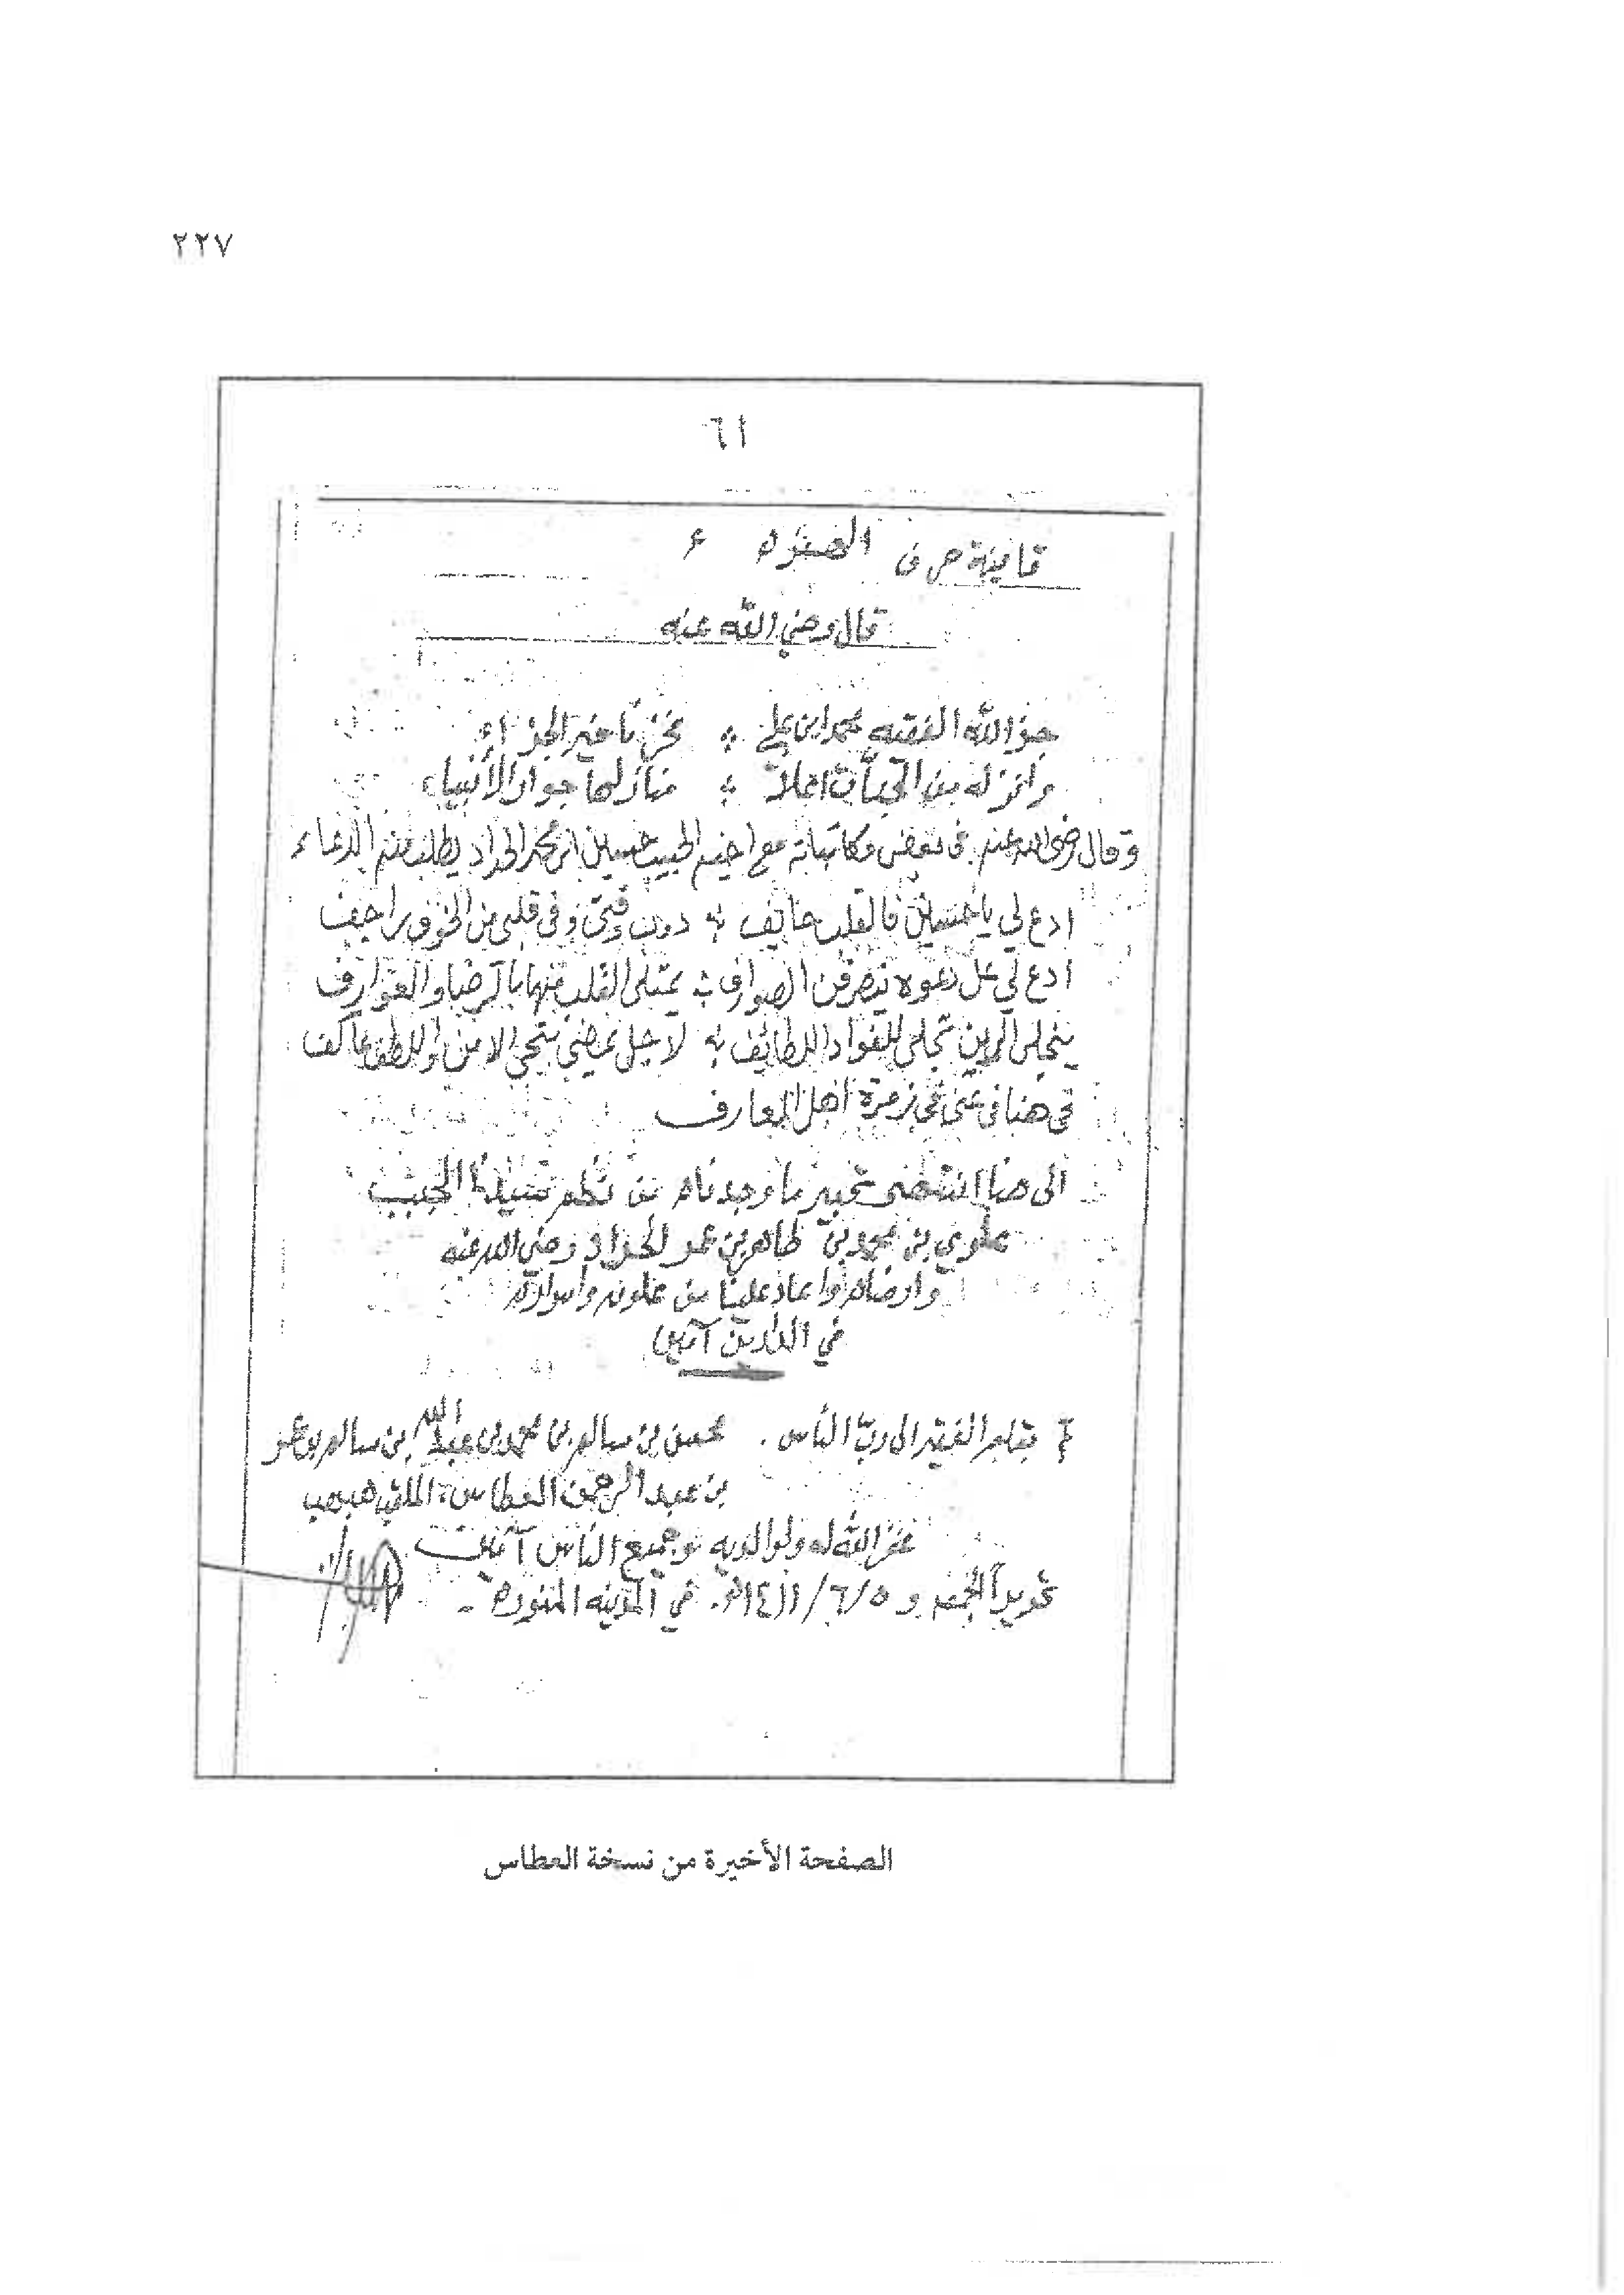 ٢٢٧
٦١
قافية حرف الهمزة ء
قال رضي الله عنه
جزى الله الفقيه محمد ابن علي * بخزنا خير الجزاء
وانزله من الجنات اعلا * منازلها جوار الأنبياء
وقال رضي الله عنه في بعض مكاتباته مع اخيه الحبيب حسين ابن محمد الحداد يطلب منه الدعاء
ادع لي يا حسين فالقلب خايف * دوب وقتي وفي قلبي من الخوف راجف
ادع لي كل دعوه تصرفن الصوارف * يمتلي القلب منها بالرضا والعوارف
ينجلي الرين تجلى للفواد اللطائف * لاجل نمضي بتحي الامن واللطف عاكف
في هنا في غنى في زمرة أهل المعارف
الى هنا انقضى تحبير ما وجدناه من نظم سيدنا الحبيب
علوي بن محمد بن طاهر بن عمر الحداد رضي الله عنه
وارضاه واعاد علينا من علومه واسراره
في الدارين آمين
تم بقلم الفقير الى ربّ الناس . محسن بن سالم بن محمد بن عبدالله بن سالم بن عمر
بن عبد الرحمن العطاس، الملقب
غفر الله له ولوالديه وجميع الناس آمين
تحريراً الجمعه و ٥/٦/١٤١١هـ. في المدينه المنوره -
الصفحة الأخيرة من نسخة العطاس